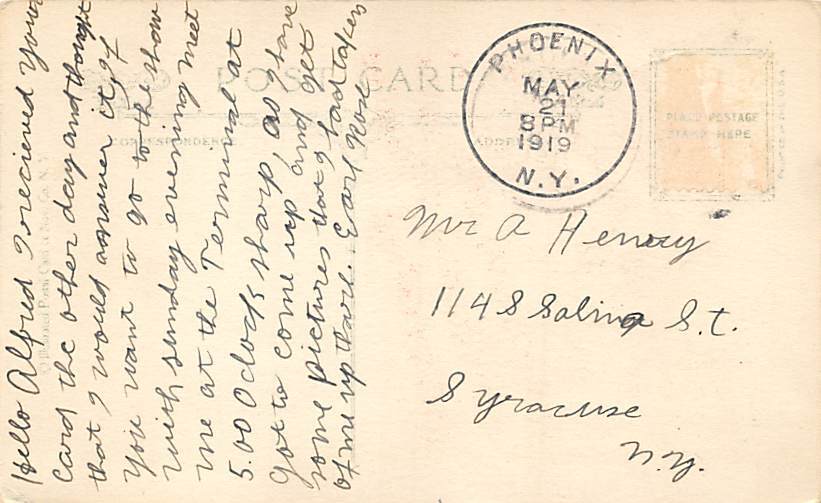 Hello Alfred I recieved your
card the other day and thought
that I would answer it. If
you want to go to the show
with sunday evening meet
me at the Terminal at
5.00 Oclock sharp, as I have
got to come up and get
some pictures that I had taken
of me up thare. Earl Rose
POST CARD
CORRESPONDENCE
ADDRESS
PHOENIX
MAY
21
8 PM
1919
N.Y.
PLACE POSTAGE
STAMP HERE
Mr A Henry
114 S Salina S.t.
Syracuse
N.Y.